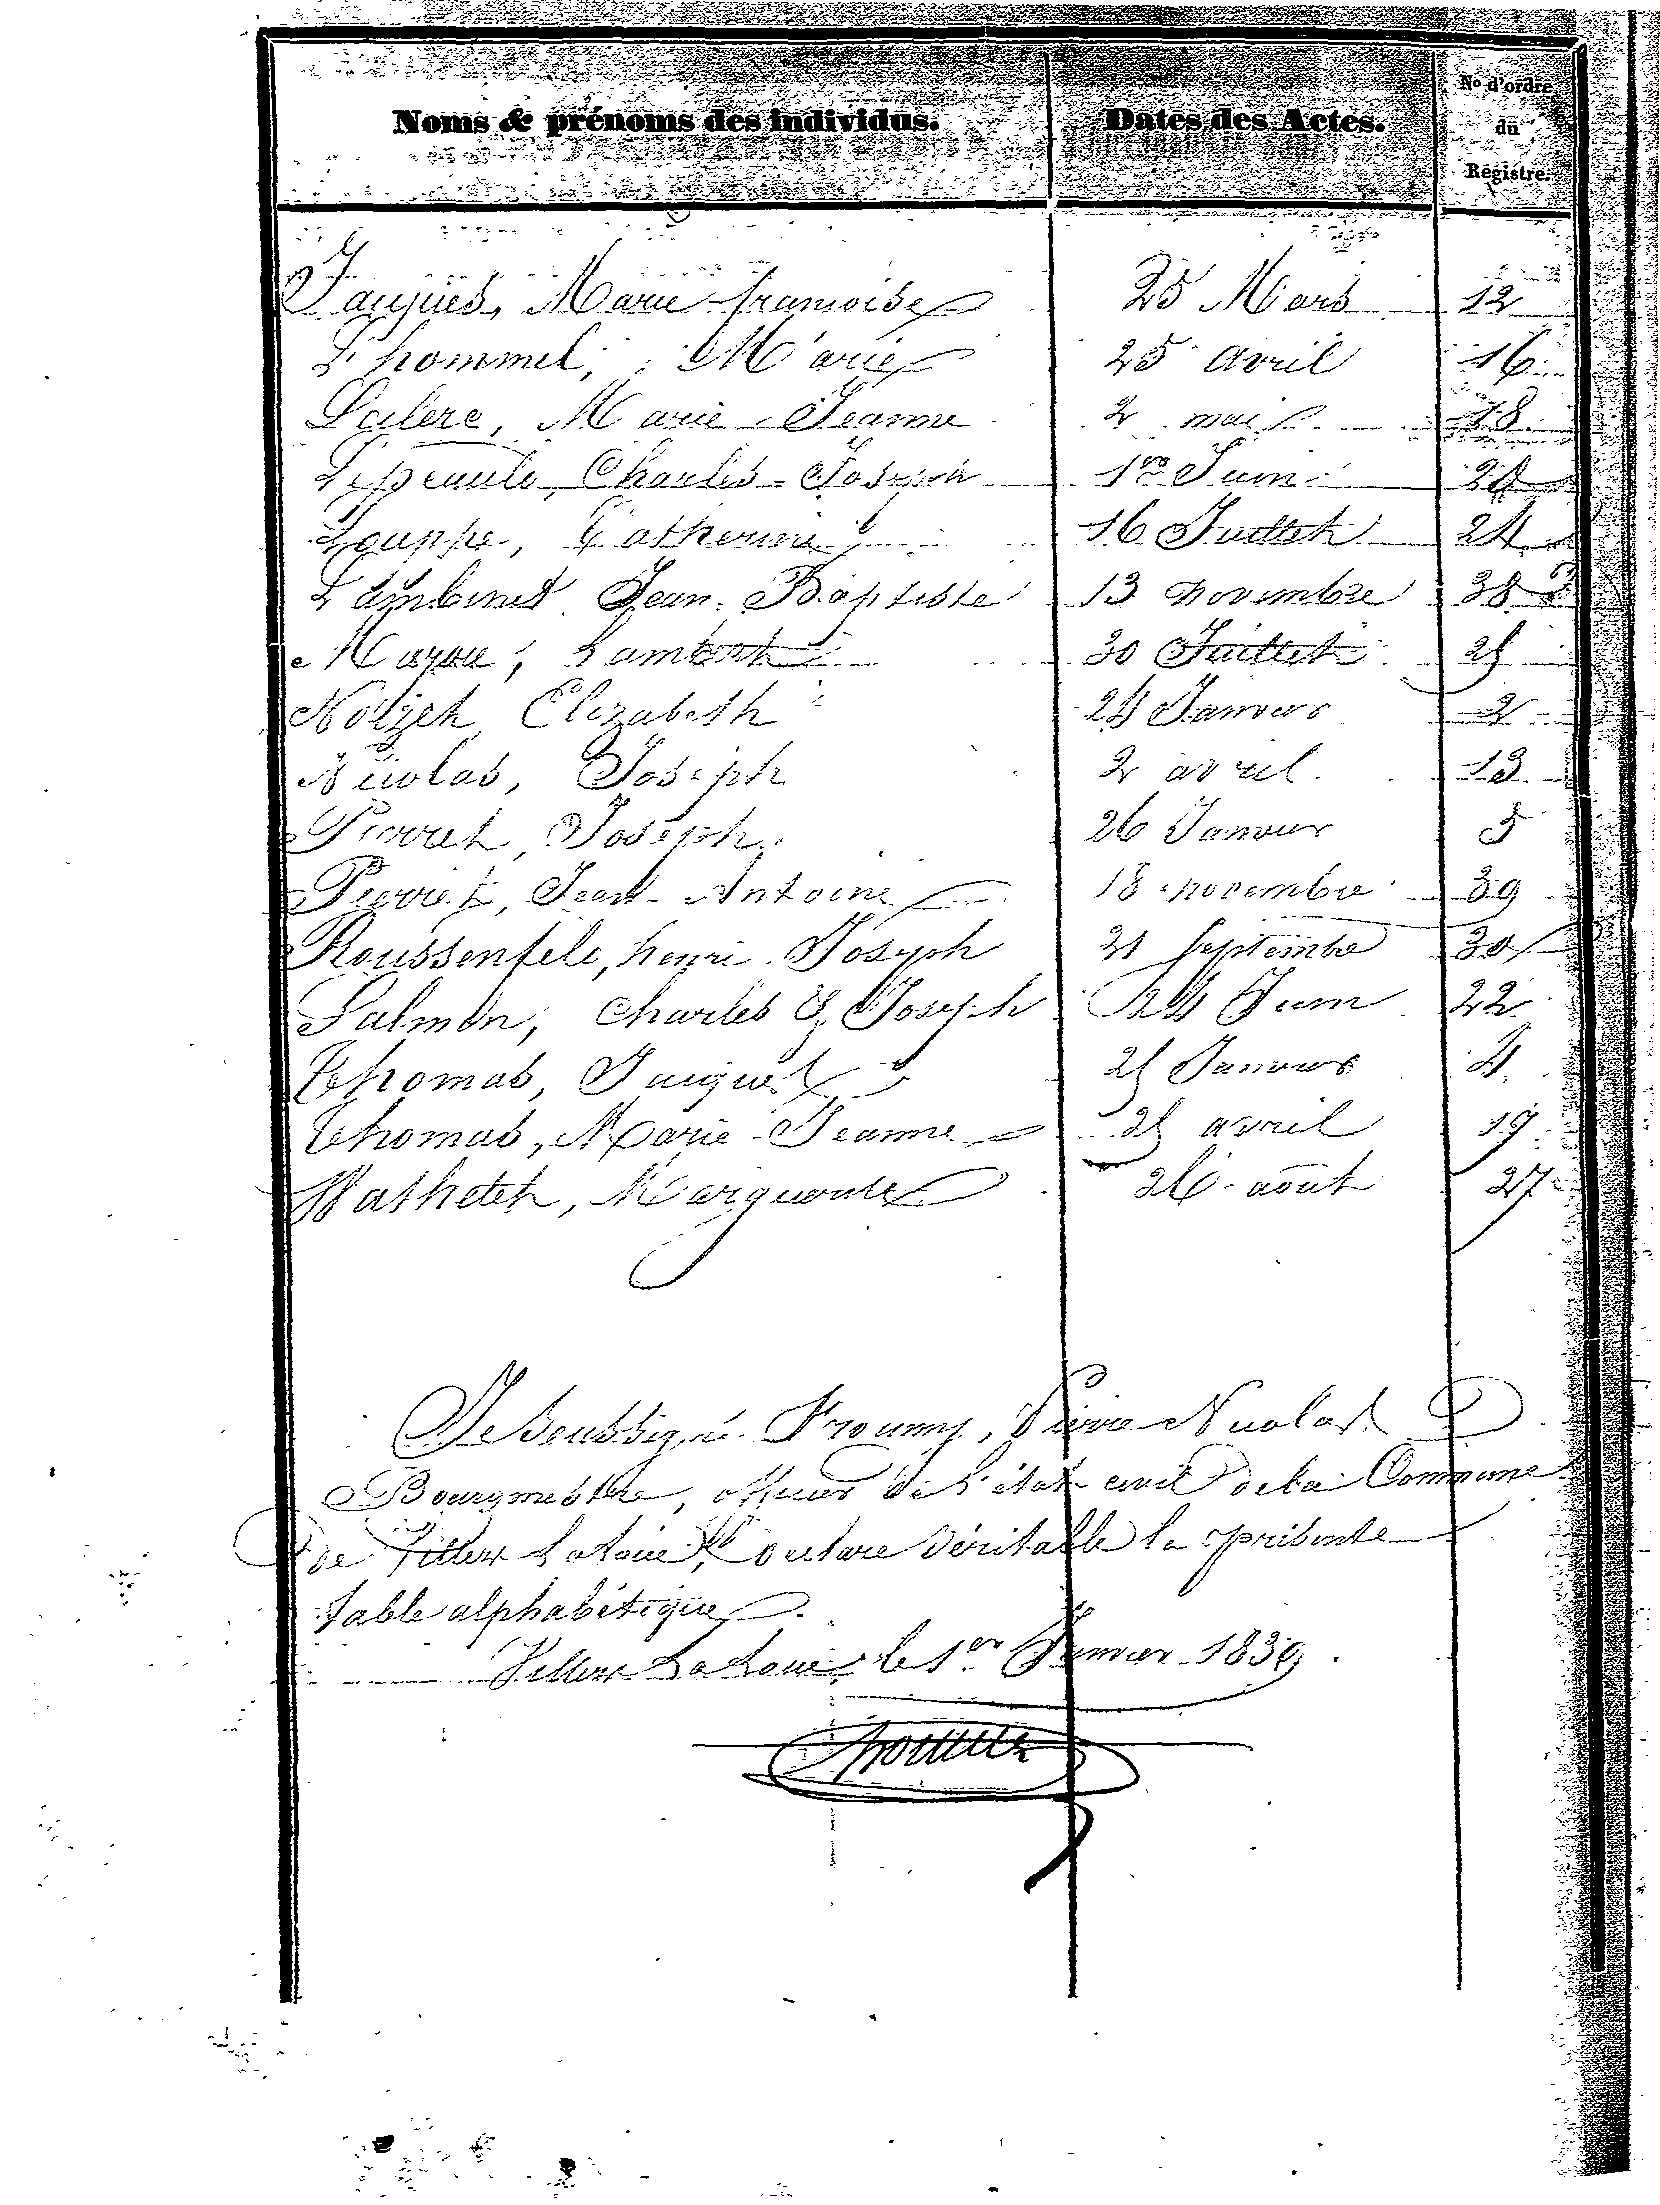 Noms & prénoms des individus. Dates des Actes. No d'ordre du Régistre.
Jaques, Marie françoise 25 Mars 12
Lhommel, Marie 25 avril 16
Leclere, Marie-Jeanne 2 mai 18
Charles-Joseph 1er Juin
Louppe, Catherine 16 Juillet 24
Lambinet Jean-Baptiste 13 novembre 38
Lambert 30 Juillet 25
Elizabeth 24 Janvier 2
Nicolas, Joseph 2 avril 13
Pierret, Joseph 26 Janvier 5
Pierret, Jean-Antoine 18 novembre 39
Roussenfele, henri Joseph 21 Septembre 30
Salmon, Charles & Joseph Juin 22
Thomas, Jaques 25 Janvier 4
Thomas, Marie-Jeanne 25 avril 17
Wathelet, Marguerite 26 août 27
Je Soussigné Pierre Nicolas
Bourgmestre, officier de l'état civil de la Commune
de Villers la loue, declare véritable la présente
table alphabétique.
Villers la loue, le 1er Janvier 1839.